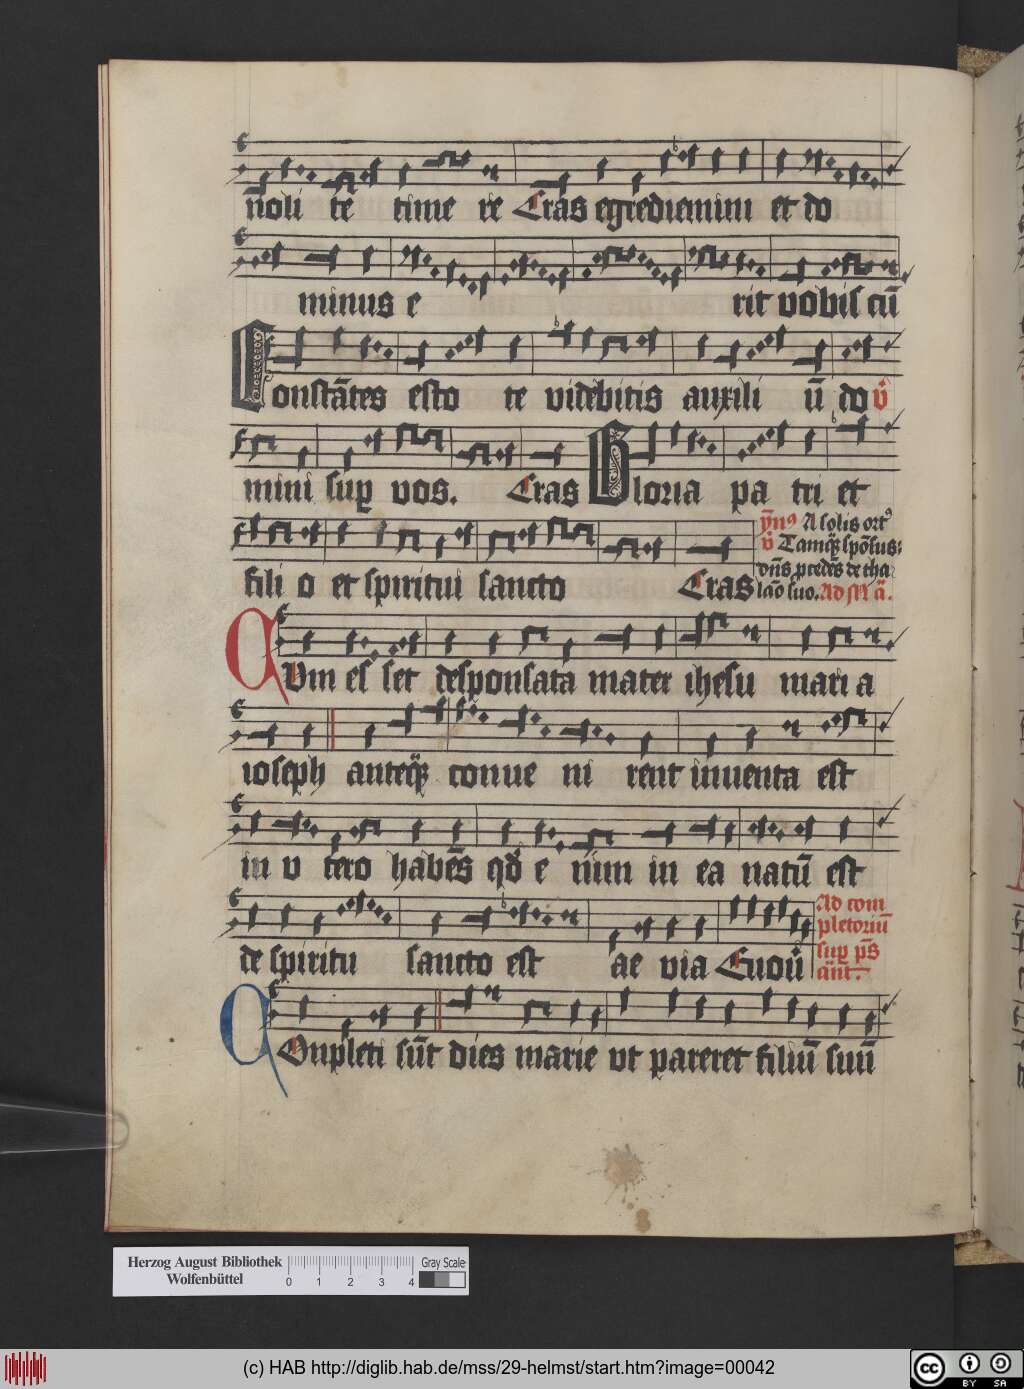 n̄oli te time re Cras egrediemini et do
minus e rit vobis cū
Constātes esto te videbitis auxili ū do v̄
mini sup vos. Cras Gloria pa tri et
fili o et spiritui sancto Cras
ȳn⁹ A solis ort⁹
v̄ Tamq̄ spōsus:
dn̄s pcedēs de tha
lāo suo. Ad M ā.
Cum es set desponsata mater ihesu mari a
ioseph anteq̄ conue ni rent inuenta est
in v tero habēs qd̄ e nim in ea natū est
de spiritu sancto est ae via Euoū
Ad com
pletoriū
sup ps̄
ānt.
Conpleti sūt dies marie vt pareret filiū suū
Herzog August Bibliothek
Wolfenbüttel
0 1 2 3 4
Gray Scale
(c) HAB http://diglib.hab.de/mss/29-helmst/start.htm?image=00042
cc BY SA